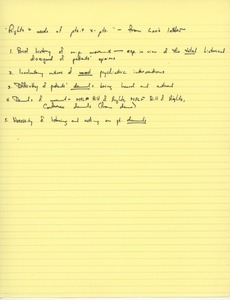 "Rights + needs of pts. + x-pts." — from
1. Brief history of m.p. movement — esp in view of the total historical
disregard of patients' opinions
2. Involuntary nature of most psychiatric interventions
3. Difficulty of patients' demands being heard and
4. Demands of movement — Bill of Rights, Bill of Rights,
Conference demands
5. Necessity of listening and acting on pt. demands